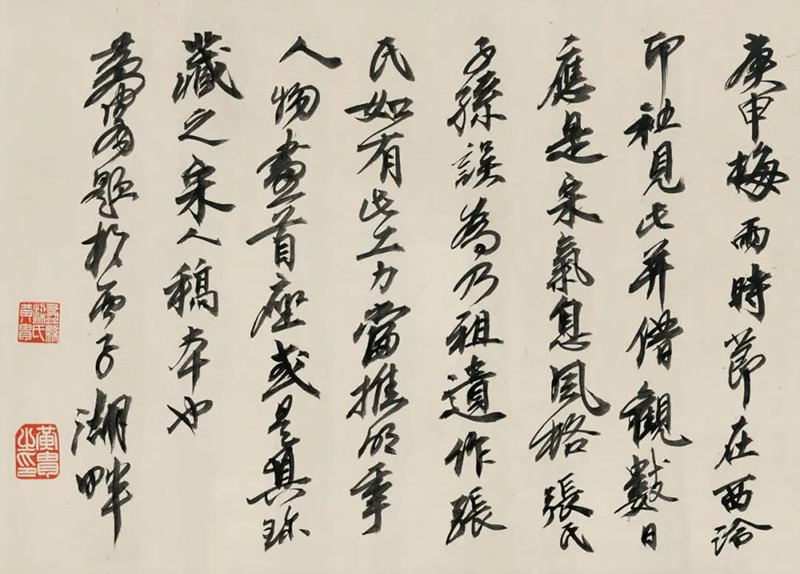 庚申梅雨時節在西泠
印社見此并借觀數日
應是宋氣息風格張氏
子孫誤為乃祖遺作張
氏如有此工力當推明季
人物畫首座或是其珍
藏之宋人稿本也
黃胄題於西子湖畔
蠡縣梁氏黃胄
黃胄之印